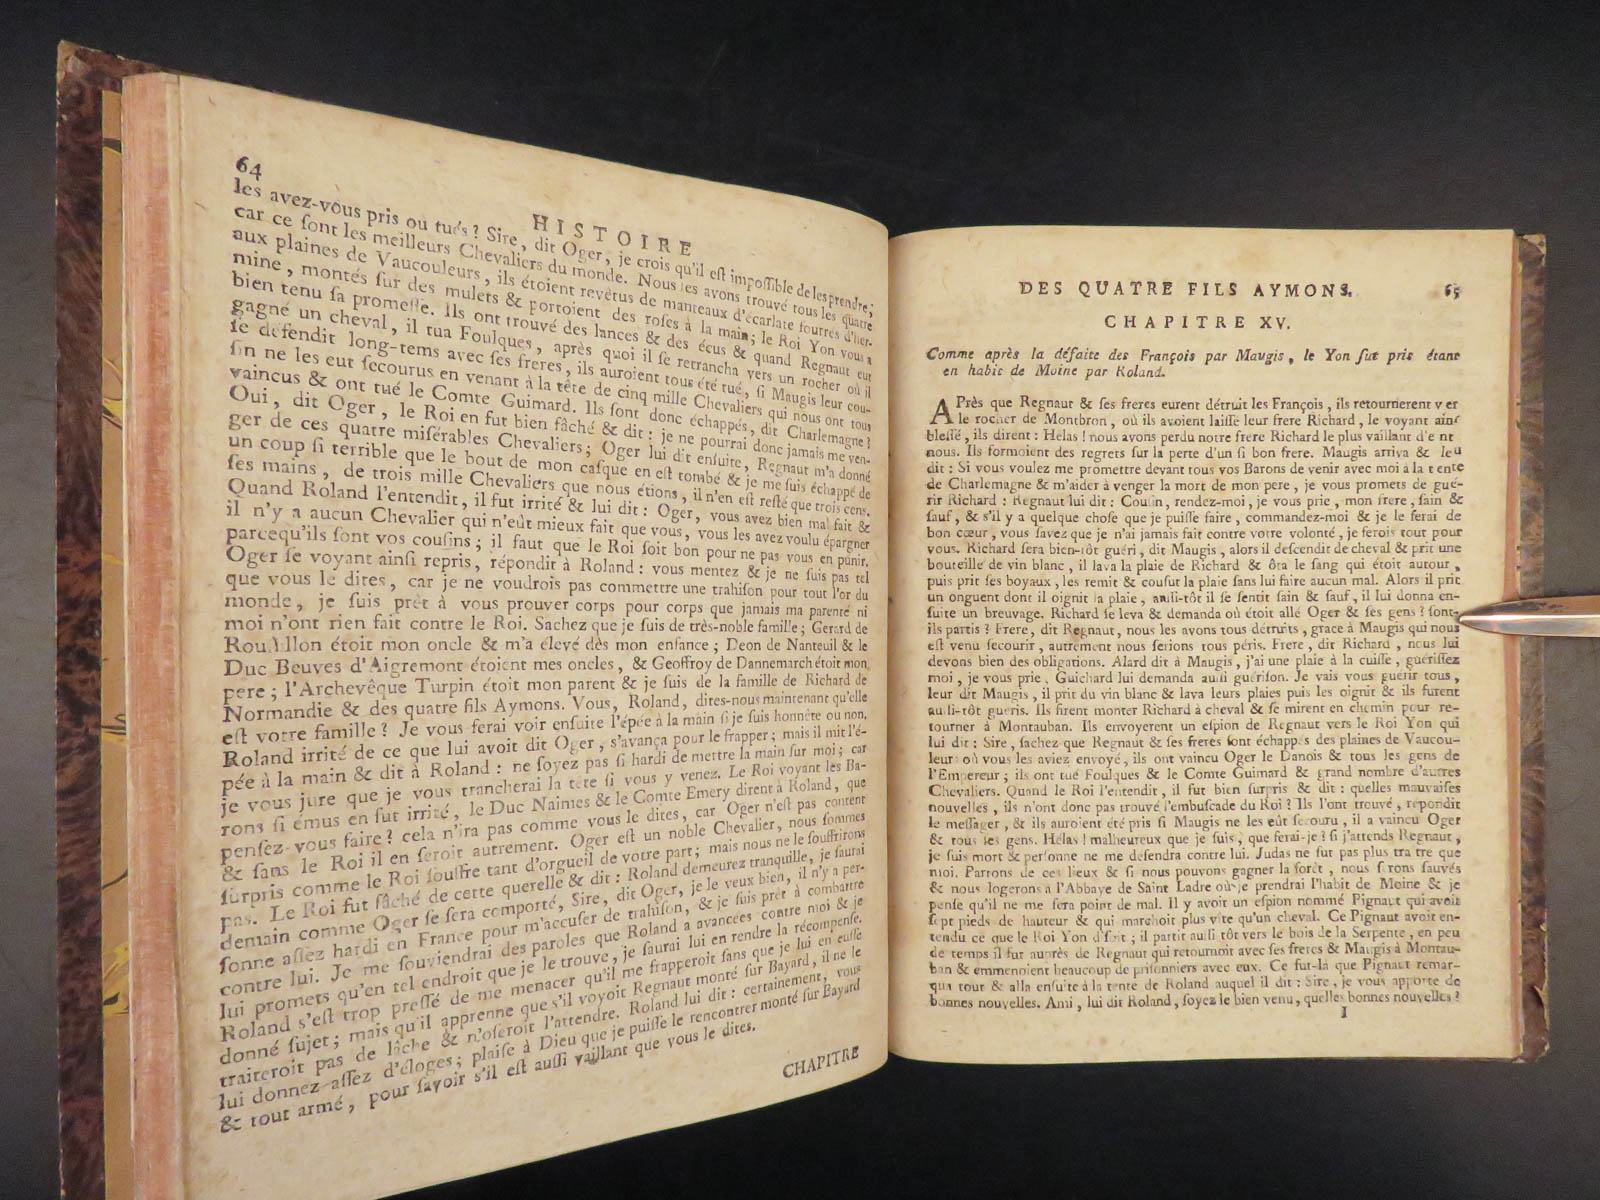 64
HISTOIRE
les avez-vous pris ou tués ? Sire, dit Oger, je crois qu'il est impossible de les prendre;
car ce sont les meilleurs Chevaliers du monde. Nous les avons trouvé tous les quatre
aux plaines de Vaucouleurs, ils étoient revêtus de manteaux d'écarlate fourrés d'her-
mine, montés sur des mulets & portoient des roses à la main; le Roi Yon vous a
bien tenu sa promesse. Ils ont trouvé des lances & des écus & quand Regnaut eut
gagné un cheval, il tua Foulques, après quoi il se retrancha vers un rocher où il
se défendit long-tems avec ses freres, ils auroient tous été tué, si Maugis leur cou-
sin ne les eut secourus en venant à la tête de cinq mille Chevaliers qui nous ont tous
vaincus & ont tué le Comte Guimard. Ils sont donc échappés, dit Charlemagne ?
Oui, dit Oger, le Roi en fut bien fâché & dit : je ne pourrai donc jamais me ven-
ger de ces quatre misérables Chevaliers; Oger lui dit ensuite, Regnaut m'a donné
un coup si terrible que le bout de mon casque en est tombé & je me suis échappé de
ses mains, de trois mille Chevaliers que nous étions, il n'en est resté que trois cens.
Quand Roland l'entendit, il fut irrité & lui dit : Oger, vous avez bien mal fait &
il n'y a aucun Chevalier qui n'eût mieux fait que vous, vous les avez voulu épargner
parcequ'ils sont vos cousins; il faut que le Roi soit bon pour ne pas vous en punir.
Oger se voyant ainsi repris, répondit à Roland : vous mentez & je ne suis pas tel
que vous le dites, car je ne voudrois pas commettre une trahison pour tout l'or du
monde, je suis prêt à vous prouver corps pour corps que jamais ma parenté ni
moi n'ont rien fait contre le Roi. Sachez que je suis de très-noble famille; Gerard de
Roussillon étoit mon oncle & m'a élevé dès mon enfance; Deon de Nanteuil & le
Duc Beuves d'Aigremont étoient mes oncles, & Geoffroy de Dannemarch étoit mon
pere; l'Archevêque Turpin étoit mon parent & je suis de la famille de Richard de
Normandie & des quatre fils Aymons. Vous, Roland, dites-nous maintenant qu'elle
est votre famille ? Je vous ferai voir ensuite l'épée à la main si je suis honnête ou non.
Roland irrité de ce que lui avoit dit Oger, s'avança pour le frapper; mais il mit l'é-
pée à la main & dit à Roland : ne soyez pas si hardi de mettre la main sur moi; car
je vous jure que je vous trancherai la tête si vous y venez. Le Roi voyant les Ba-
rons si émus en fut irrité, le Duc Naimes & le Comte Emery dirent à Roland, que
pensez-vous faire ? cela n'ira pas comme vous le dites, car Oger n'est pas content
& sans le Roi il en seroit autrement. Oger est un noble Chevalier, nous sommes
surpris comme le Roi souffre tant d'orgueil de votre part; mais nous ne le souffrirons
pas. Le Roi fut fâché de cette querelle & dit : Roland demeurez tranquille, je saurai
demain comme Oger se sera comporté, Sire, dit Oger, je le veux bien, il n'y a per-
sonne assez hardi en France pour m'accuser de trahison, & je suis prêt à combattre
contre lui. Je me souviendrai des paroles que Roland a avancées contre moi & je
lui promets qu'en tel endroit que je le trouve, je saurai lui en rendre la récompense.
Roland s'est trop pressé de me menacer qu'il me frapperoit sans que je lui en eusse
donné sujet; mais qu'il apprenne que s'il voyoit Regnaut monté sur Bayard, il ne le
traiteroit pas de lâche & n'oseroit l'attendre. Roland lui dit : certainement, vous
lui donnez assez d'éloges; plaise à Dieu que je puisse le rencontrer monté sur Bayard
& tout armé, pour savoir s'il est aussi vaillant que vous le dites.
CHAPITRE
DES QUATRE FILS AYMONS. 65
CHAPITRE XV.
Comme après la défaite des François par Maugis, le Yon fut pris étant
en habit de Moine par Roland.
APrès que Regnaut & ses freres eurent détruit les François, ils retournerent vers
le rocher de Montbron, où ils avoient laissé leur frere Richard, le voyant ainsi
blessé, ils dirent : Hélas ! nous avons perdu notre frere Richard le plus vaillant d'entre
nous. Ils formoient des regrets sur la perte d'un si bon frere. Maugis arriva & leu
dit : Si vous voulez me promettre devant tous vos Barons de venir avec moi à la tente
de Charlemagne & m'aider à venger la mort de mon pere, je vous promets de gué-
rir Richard : Regnaut lui dit : Cousin, rendez-moi, je vous prie, mon frere, sain &
sauf, & s'il y a quelque chose que je puisse faire, commandez-moi & je le ferai de
bon cœur, vous savez que je n'ai jamais fait contre votre volonté, je ferois tout pour
vous. Richard sera bien-tôt guéri, dit Maugis, alors il descendit de cheval & prit une
bouteille de vin blanc, il lava la plaie de Richard & ôta le sang qui étoit autour,
puis prit ses boyaux, les remit & cousut la plaie sans lui faire aucun mal. Alors il prit
un onguent dont il oignit la plaie, aussi-tôt il se sentit sain & sauf, il lui donna en-
suite un breuvage. Richard se leva & demanda où étoit allé Oger & ses gens ? sont-
ils partis ? Frere, dit Regnaut, nous les avons tous détruits, grace à Maugis qui nous
est venu secourir, autrement nous serions tous péris. Frere, dit Richard, nous lui
devons bien des obligations. Alard dit à Maugis, j'ai une plaie à la cuisse, guérissez
moi, je vous prie. Guichard lui demanda aussi guérison. Je vais vous guérir tous,
leur dit Maugis, il prit du vin blanc & lava leurs plaies puis les oignit & ils furent
aussi-tôt guéris. Ils firent monter Richard à cheval & se mirent en chemin pour re-
tourner à Montauban. Ils envoyerent un espion de Regnaut vers le Roi Yon qui
lui dit : Sire, sachez que Regnaut & ses freres sont échappés des plaines de Vaucou-
leur où vous les aviez envoyé, ils ont vaincu Oger le Danois & tous les gens de
l'Empereur; ils ont tué Foulques & le Comte Guimard & grand nombre d'autres
Chevaliers. Quand le Roi l'entendit, il fut bien surpris & dit : quelles mauvaises
nouvelles, ils n'ont donc pas trouvé l'embuscade du Roi ? Ils l'ont trouvé, répondit
le messager, & ils auroient été pris si Maugis ne les eût secouru, il a vaincu Oger
& tous les gens. Hélas ! malheureux que je suis, que ferai-je ? si j'attends Regnaut,
je suis mort & personne ne me défendra contre lui. Judas ne fut pas plus traître que
moi. Partons de ces lieux & si nous pouvons gagner la forêt, nous serons sauvés
& nous logerons à l'Abbaye de Saint Ladre où je prendrai l'habit de Moine & je
pense qu'il ne me sera point de mal. Il y avoit un espion nommé Pignaut qui avoit
sept pieds de hauteur & qui marchoit plus vîte qu'un cheval. Ce Pignaut avoit en-
tendu ce que le Roi Yon disoit; il partit aussi tôt vers le bois de la Serpente, en peu
de temps il fut auprès de Regnaut qui retournoit avec ses freres & Maugis à Montau-
ban & emmenoient beaucoup de prisonniers avec eux. Ce fut-là que Pignaut remar-
qua tout & alla ensuite à la tente de Roland auquel il dit : Sire, je vous apporte de
bonnes nouvelles. Ami, lui dit Roland, soyez le bien venu, quelles bonnes nouvelles ?
I